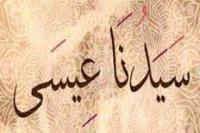 سَيِّدُنَا عِيسَى